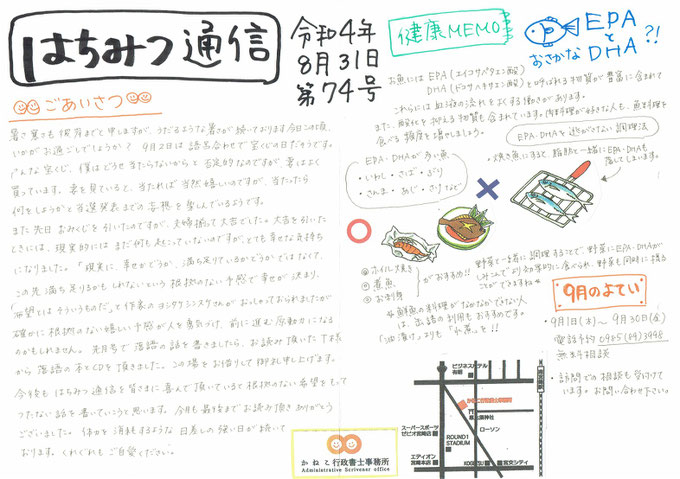 はちみつ通信
令和4年
8月31日
第74号
ごあいさつ
暑さ寒さも彼岸までと申しますが、うだるような暑さが続いております今日この頃、
いかがお過ごしでしょうか? 9月2日は語呂合わせで宝くじの日だそうです。
こんな宝くじ、僕はどうせ当たらないからと否定的なのですが、妻はよく
買っています。妻を見ていると、当たれば当然嬉しいのですが、当たたら
何をしようかと当選発表までの妄想を楽しんでいるようです。
また先日おみくじを引いたのですが、夫婦揃って大吉でした。大吉を引いた
ときには、現実的にはまだ何も起こっていないのですが、とても幸せな気持ち
になりました。「現実に、幸せかどうか、満ち足りているかどうかではなくて、
この先満ち足りるかもしれないという根拠のない予感で幸せが決まり、
希望とはそういうものだ」と作家のヨシタケシンスケさんがおっしゃておられましたが
確かに根拠のない嬉しい予感が人を勇気づけ、前に進む原動力になる
のかもしれません。先月号で落語の話を書きましたら、お読み頂いたT様
から落語の本とCDを頂きました。この場をお借りして御礼申し上げます。
今後もはちみつ通信を皆さまに喜んで頂いていると根拠のない希望をもって
つたない話を書いていこうと思います。今月も最後までお読み頂きありがとう
ございました。体力を消耗するような日差しの強い日が続いて
おります。くれぐれもご自愛ください。
健康MEMO
おさかな
EPA
と
DHA
?!
お魚にはEPA(エイコサペタエン酸)
DHA(ドコサヘキサエン酸)と呼ばれる物質が豊富に含まれて
これらには血液の流れをよくする働きがあります。
また、酸化を抑える物質も含まれています。肉料理が好きな人も、魚料理を
食べる頻度を増やしましょう。
EPA・DHAが多い魚
・いわし・さば・ぶり
・さんま・あじ・さけなど
EPA・DHAを逃がさない調理法
・焼き魚にすると脂肪と一緒にEPA・DHAも
落としてしまいます。
◎ホイル焼き
◎煮魚
◎お刺身
がおすすめ!!
野菜と一緒に調理することで、野菜にEPA・DHAが
しみこんでより効率的に食べられ、野菜も同時に摂る
ことができますね
※鮮魚の料理がなかなかできない人
は、缶詰の利用もおすすめです。
「油漬け」よりも「水煮」を!!
9月のよてい
・9月1日(木)~9月30日(金)
電話予約 0985(64)3998
無料相談
・訪問での相談も受付けて
います。お問い合わせ下さい。
かねこ行政書士事務所
Administrative Scrivener office
ビジネスホテル
有明
かねこ行政書士事務所
ローソン
スーパースポーツ
ゼビオ宮崎店
ROUND1
STADIUM
エディオン
宮崎本店
宮交シティ